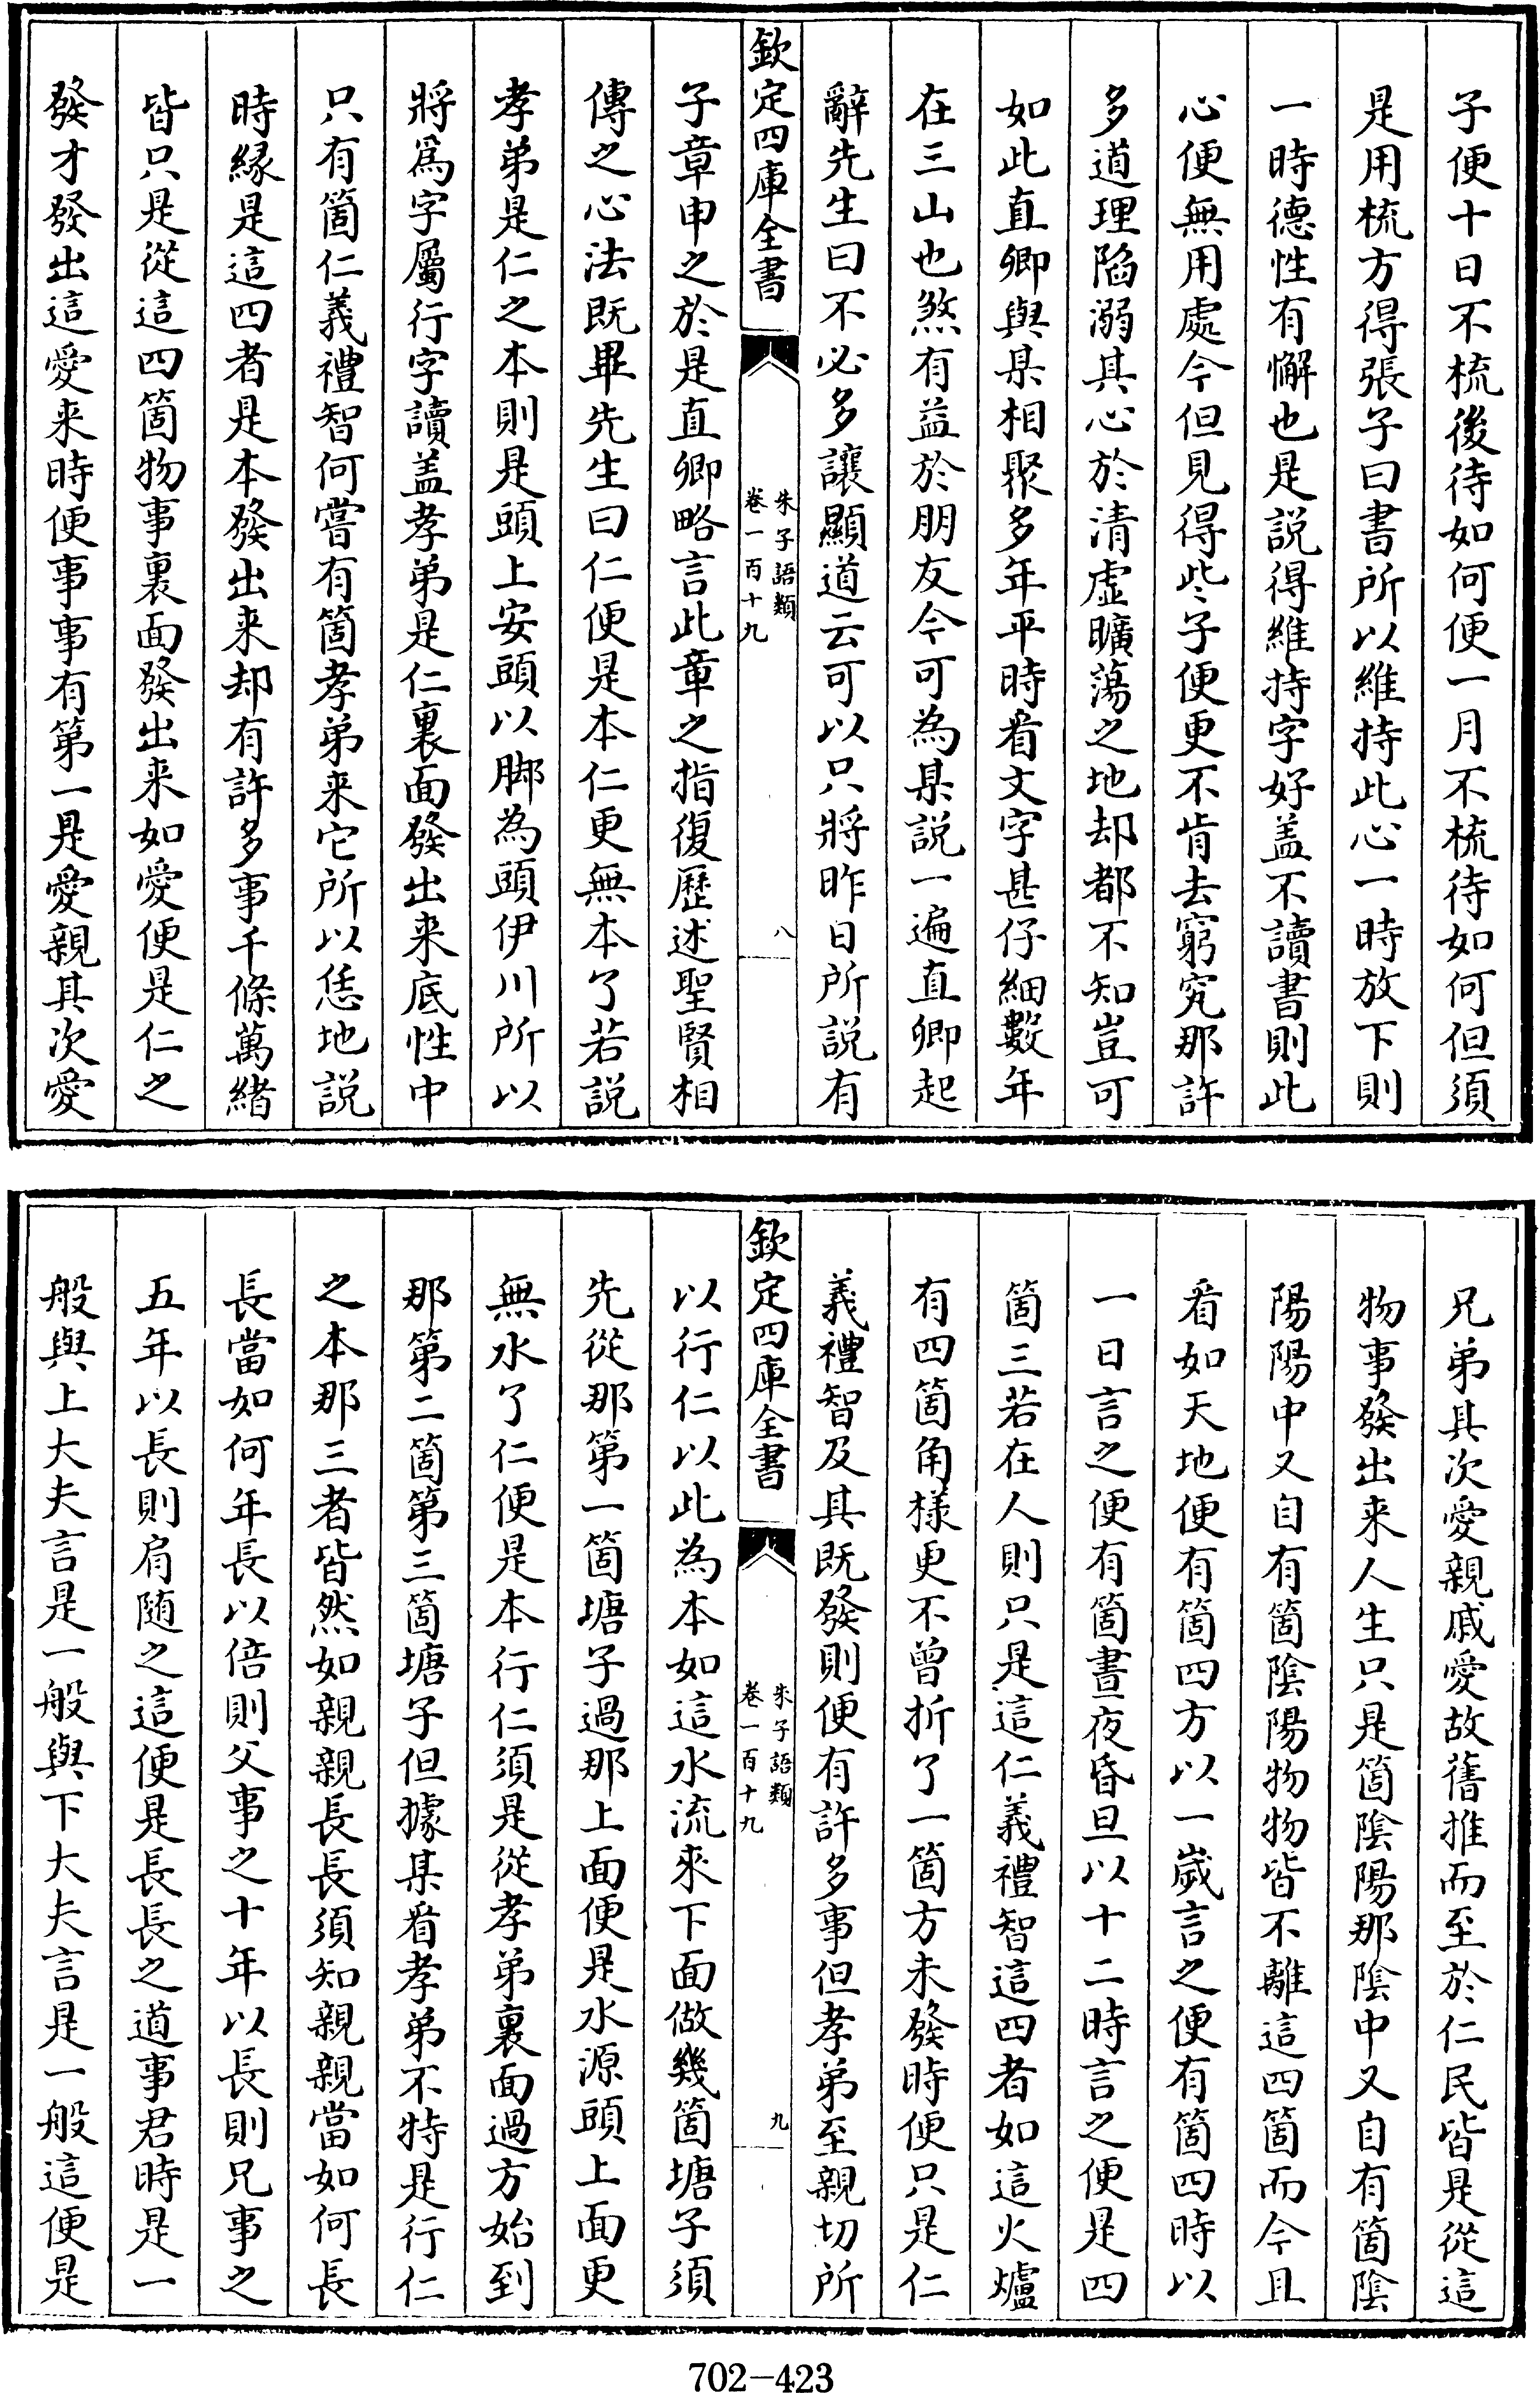 子便十日不梳後待如何便一月不梳待如何但須
是用梳方得張子曰書所以維持此心一時放下則
一時德性有懈也是説得維持字好盖不讀書則此
心便無用處今但見得些子便更不肯去窮究那許
多道理陷溺其心於清虛曠蕩之地却都不知豈可
如此直卿與某相聚多年平時看文字甚仔細數年
在三山也煞有益於朋友今可為某説一遍直卿起
辭先生曰不必多讓顯道云可以只將昨日所説有
欽定四庫全書
朱子語類
卷一百十九
八
子章申之於是直卿略言此章之指復歷述聖賢相
傳之心法既畢先生曰仁便是本仁更無本了若説
孝弟是仁之本則是頭上安頭以脚為頭伊川所以
將爲字屬行字讀盖孝弟是仁裏面發出来底性中
只有箇仁義禮智何嘗有箇孝弟来它所以恁地説
時緣是這四者是本發出来却有許多事千條萬緒
皆只是從這四箇物事裏面發出来如愛便是仁之
發才發出這愛来時便事事有第一是愛親其次愛
兄弟其次愛親戚愛故舊推而至於仁民皆是從這
物事發出来人生只是箇陰陽那陰中又自有箇陰
陽陽中又自有箇陰陽物物皆不離這四箇而今且
看如天地便有箇四方以一歲言之便有箇四時以
一日言之便有箇晝夜昏旦以十二時言之便是四
箇三若在人則只是這仁義禮智這四者如這火爐
有四箇角樣更不曾折了一箇方未發時便只是仁
義禮智及其既發則便有許多事但孝弟至親切所
欽定四庫全書
朱子語類
卷一百十九
九
以行仁以此為本如這水流來下面做幾箇塘子須
先從那第一箇塘子過那上面便是水源頭上面更
無水了仁便是本行仁須是從孝弟裏面過方始到
那第二箇第三箇塘子但據某看孝弟不特是行仁
之本那三者皆然如親親長長須知親親當如何長
長當如何年長以倍則父事之十年以長則兄事之
五年以長則肩随之這便是長長之道事君時是一
般與上大夫言是一般與下大夫言是一般這便是
702-423